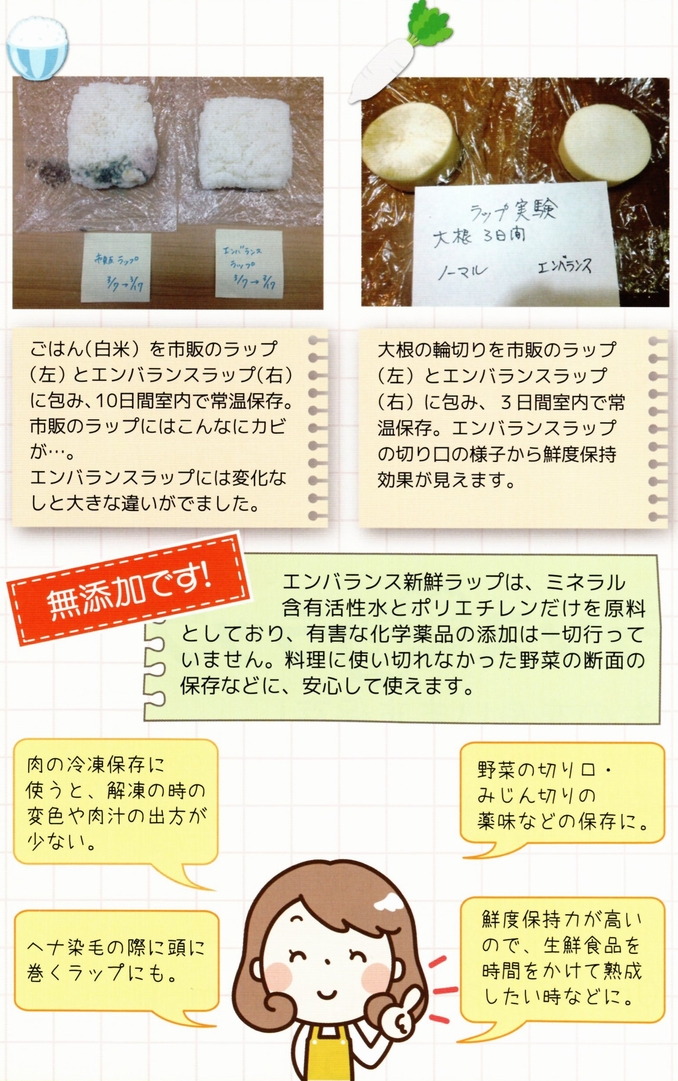 市販ラップ
3/7→3/17
エンバランス
ラップ
3/7→3/17
ラップ実験
大根 3日間
ノーマル エンバランス
ごはん(白米)を市販のラップ
(左)とエンバランスラップ(右)
に包み、10日間室内で常温保存。
市販のラップにはこんなにカビ
が…。
エンバランスラップには変化な
しと大きな違いがでました。
大根の輪切りを市販のラップ
(左)とエンバランスラップ
(右)に包み、３日間室内で常
温保存。エンバランスラップ
の切り口の様子から鮮度保持
効果が見えます。
無添加です!
エンバランス新鮮ラップは、ミネラル
含有活性水とポリエチレンだけを原料
としており、有害な化学薬品の添加は一切行って
いません。料理に使い切れなかった野菜の断面の
保存などに、安心して使えます。
肉の冷凍保存に
使うと、解凍の時の
変色や肉汁の出方が
少ない。
野菜の切り口・
みじん切りの
薬味などの保存に。
ヘナ染毛の際に頭に
巻くラップにも。
鮮度保持力が高い
ので、生鮮食品を
時間をかけて熟成
したい時などに。